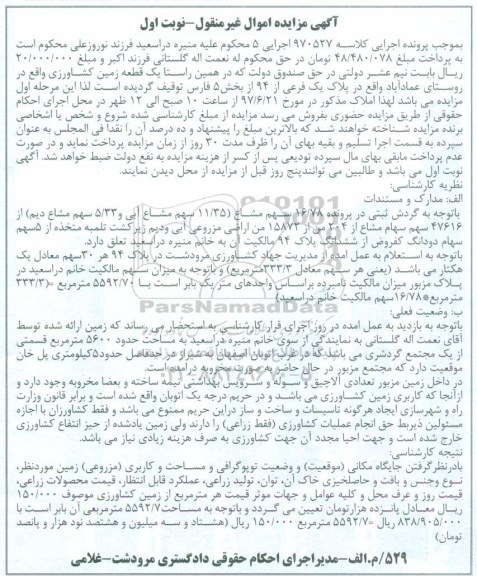 آگهی مزایده اموال غیرمنقول-نوبت اول
بموجب پرونده اجرایی کلاسه ۹۷۰۵۲۷ اجرایی ۵ محکوم علیه منیره دراسعید فرزند نوروزعلی محکوم است
به پرداخت مبلغ ۴۸/۴۸۰/۰۷۸ تومان در حق محکوم له نعمت اله گلستانی فرزند اکبر و مبلغ ۲۰/۰۰۰/۰۰۰
ریال بابت نیم عشر دولتی در حق صندوق دولت که در همین راستا یک قطعه زمین کشاورزی واقع در
روستای عمادآباد واقع در پلاک یک فرعی از ۹۴ از بخش۵ فارس توقیف گردیده است لذا این مرحله اول
مزایده می باشد لهذا املاک مذکور در مورخ ۹۷/۶/۲۱ از ساعت ۱۰ صبح الی ۱۲ ظهر در محل اجرای احکام
حقوقی از طریق مزایده حضوری بفروش می رسد مزایده از مبلغ کارشناسی شده شروع و شخص یا اشخاصی
برنده مزایده شناخته خواهند شد که بالاترین مبلغ را پیشنهاد و ده درصد آن را نقدا فی المجلس به عنوان
سپرده به قسمت اجرا تسلیم و بقیه بهای آن را ظرف مدت ۳۰ روز از زمان مزایده پرداخت نماید و در صورت
عدم پرداخت مابقی بهای مال سپرده تودیعی پس از کسر از هزینه مزایده به نفع دولت ضبط خواهد شد. آگهی
نوبت اول می باشد و طالبین می توانندپنج روز قبل از مزایده از محل دیدن نمایند.
نظریه کارشناسی:
الف: مدارک و مستندات
باتوجه به گردش ثبتی در پرونده ۱۶/۷۸ سهم مشاع (۱۱/۳۵ سهم مشاع آبی و۵/۳۳ سهم مشاع دیم) از
۴۷۶۱۶ سهم سهام مشاع از ۴ من از ۱۵۸۷۳ من اراضی مزروعی آبی ودیم زیرکشت تلمبه متخذه از ۵سهم
سهام دودانگ کفروض از ششدانگ پلاک ۹۴ مالکیت آن به خانم منیره دراسعید تعلق دارد.
باتوجه به استعلام به عمل آمده از مدیریت جهاد کشاورزی مرودشت در پلاک ۹۴ هر ۳۰سهم معادل یک
هکتار می باشد (یعنی هر سهم معادل ۳۳۳/۳مترمربع) و باتوجه به میزان سهم مالکیت خانم دراسعید در
پلاک مزبور میزان مالکیت نامبرده براساس واحدهای متر یک بابر است با ۵۵۹۲/۷۰ مترمربع =(۳۳۳/۳
مترمربع*۱۶/۷۸سهم مالکیت خانم دراسعید)
ب: وضعیت فعلی:
باتوجه به بازدید به عمل آمده در روز اجرای قرار کارشناسی به استحضار می رساند که زمین ارائه شده توسط
آقای نعمت اله گلستانی به نمایندگی از سوی خانم منیره دراسعید به مساحت حدود ۵۶۰۰ مترمربع قسمتی
از یک مجتمع گردشگری می باشد که در غرب اتوبان اصفهان به شیراز در حدفاصل حدود۵کیلومتری پل خان
موقعیت دارد که مجتمع مزبور در حال حاضر به صورت مخروبه درآمده است.
در داخل زمین مزبور تعدادی آلاچیق و سوله و سرویس بهداشتی نیمه ساخته و بعضا مخروبه وجود دارد و
ازآنجا که کاربری زمین کشاورزی می باشـد و در حریم درجه یک اتوبان واقع شده است و برابر قانون وزارت
راه و شهرسازی ایجاد هرگونه تاسیسات و ساخت و ساز دراین حریم ممنوع می باشد و فقط کشاورزان با اجازه
مسئولین ذیربط حق انجام عملیات کشاورزی (فقط زراعی) را دارند ولی زمین یادشده از حیز انتفاع کشاورزی
خارج شده است و جهت احیا مجدد آن جهت کشاورزی به صرف هزینه زیادی نیاز می باشد.
نتیجه کارشناسی:
بادرنظرگرفتن جایگاه مکانی (موقعیت) و وضعیت توپوگرافی و مساحت و کاربری (مزروعی) زمین موردنظر،
نوع وجنس و بافت و حاصلخیزی خاک آن، توان، تولید زراعی، عملکرد قابل انتظار، قیمت محصولات زراعی،
قیمت روز و عرف محل و کلیه عوامل و جهات موثر قیمت هر مترمربع از زمین کشاورزی موصوف ۱۵۰/۰۰۰
ریال معادل پانزده هزارتومان تعیین می گردد و باتوجه به مساحت۵۵۹۲/۷ مترمربعی آن بابر است با
۸۳۸/۹۰۵/۰۰۰ ریال =۵۵۹۲/۷ مترمربع ۱۵۰/۰۰۰ ریال (هشتاد و سه میلیون و هشتصد نود هزار و پانصد
تومان)
۵۲۹/م.الف-مدیراجرای احکام حقوقی دادگستری مرودشت-غلامی
ParsNamadData